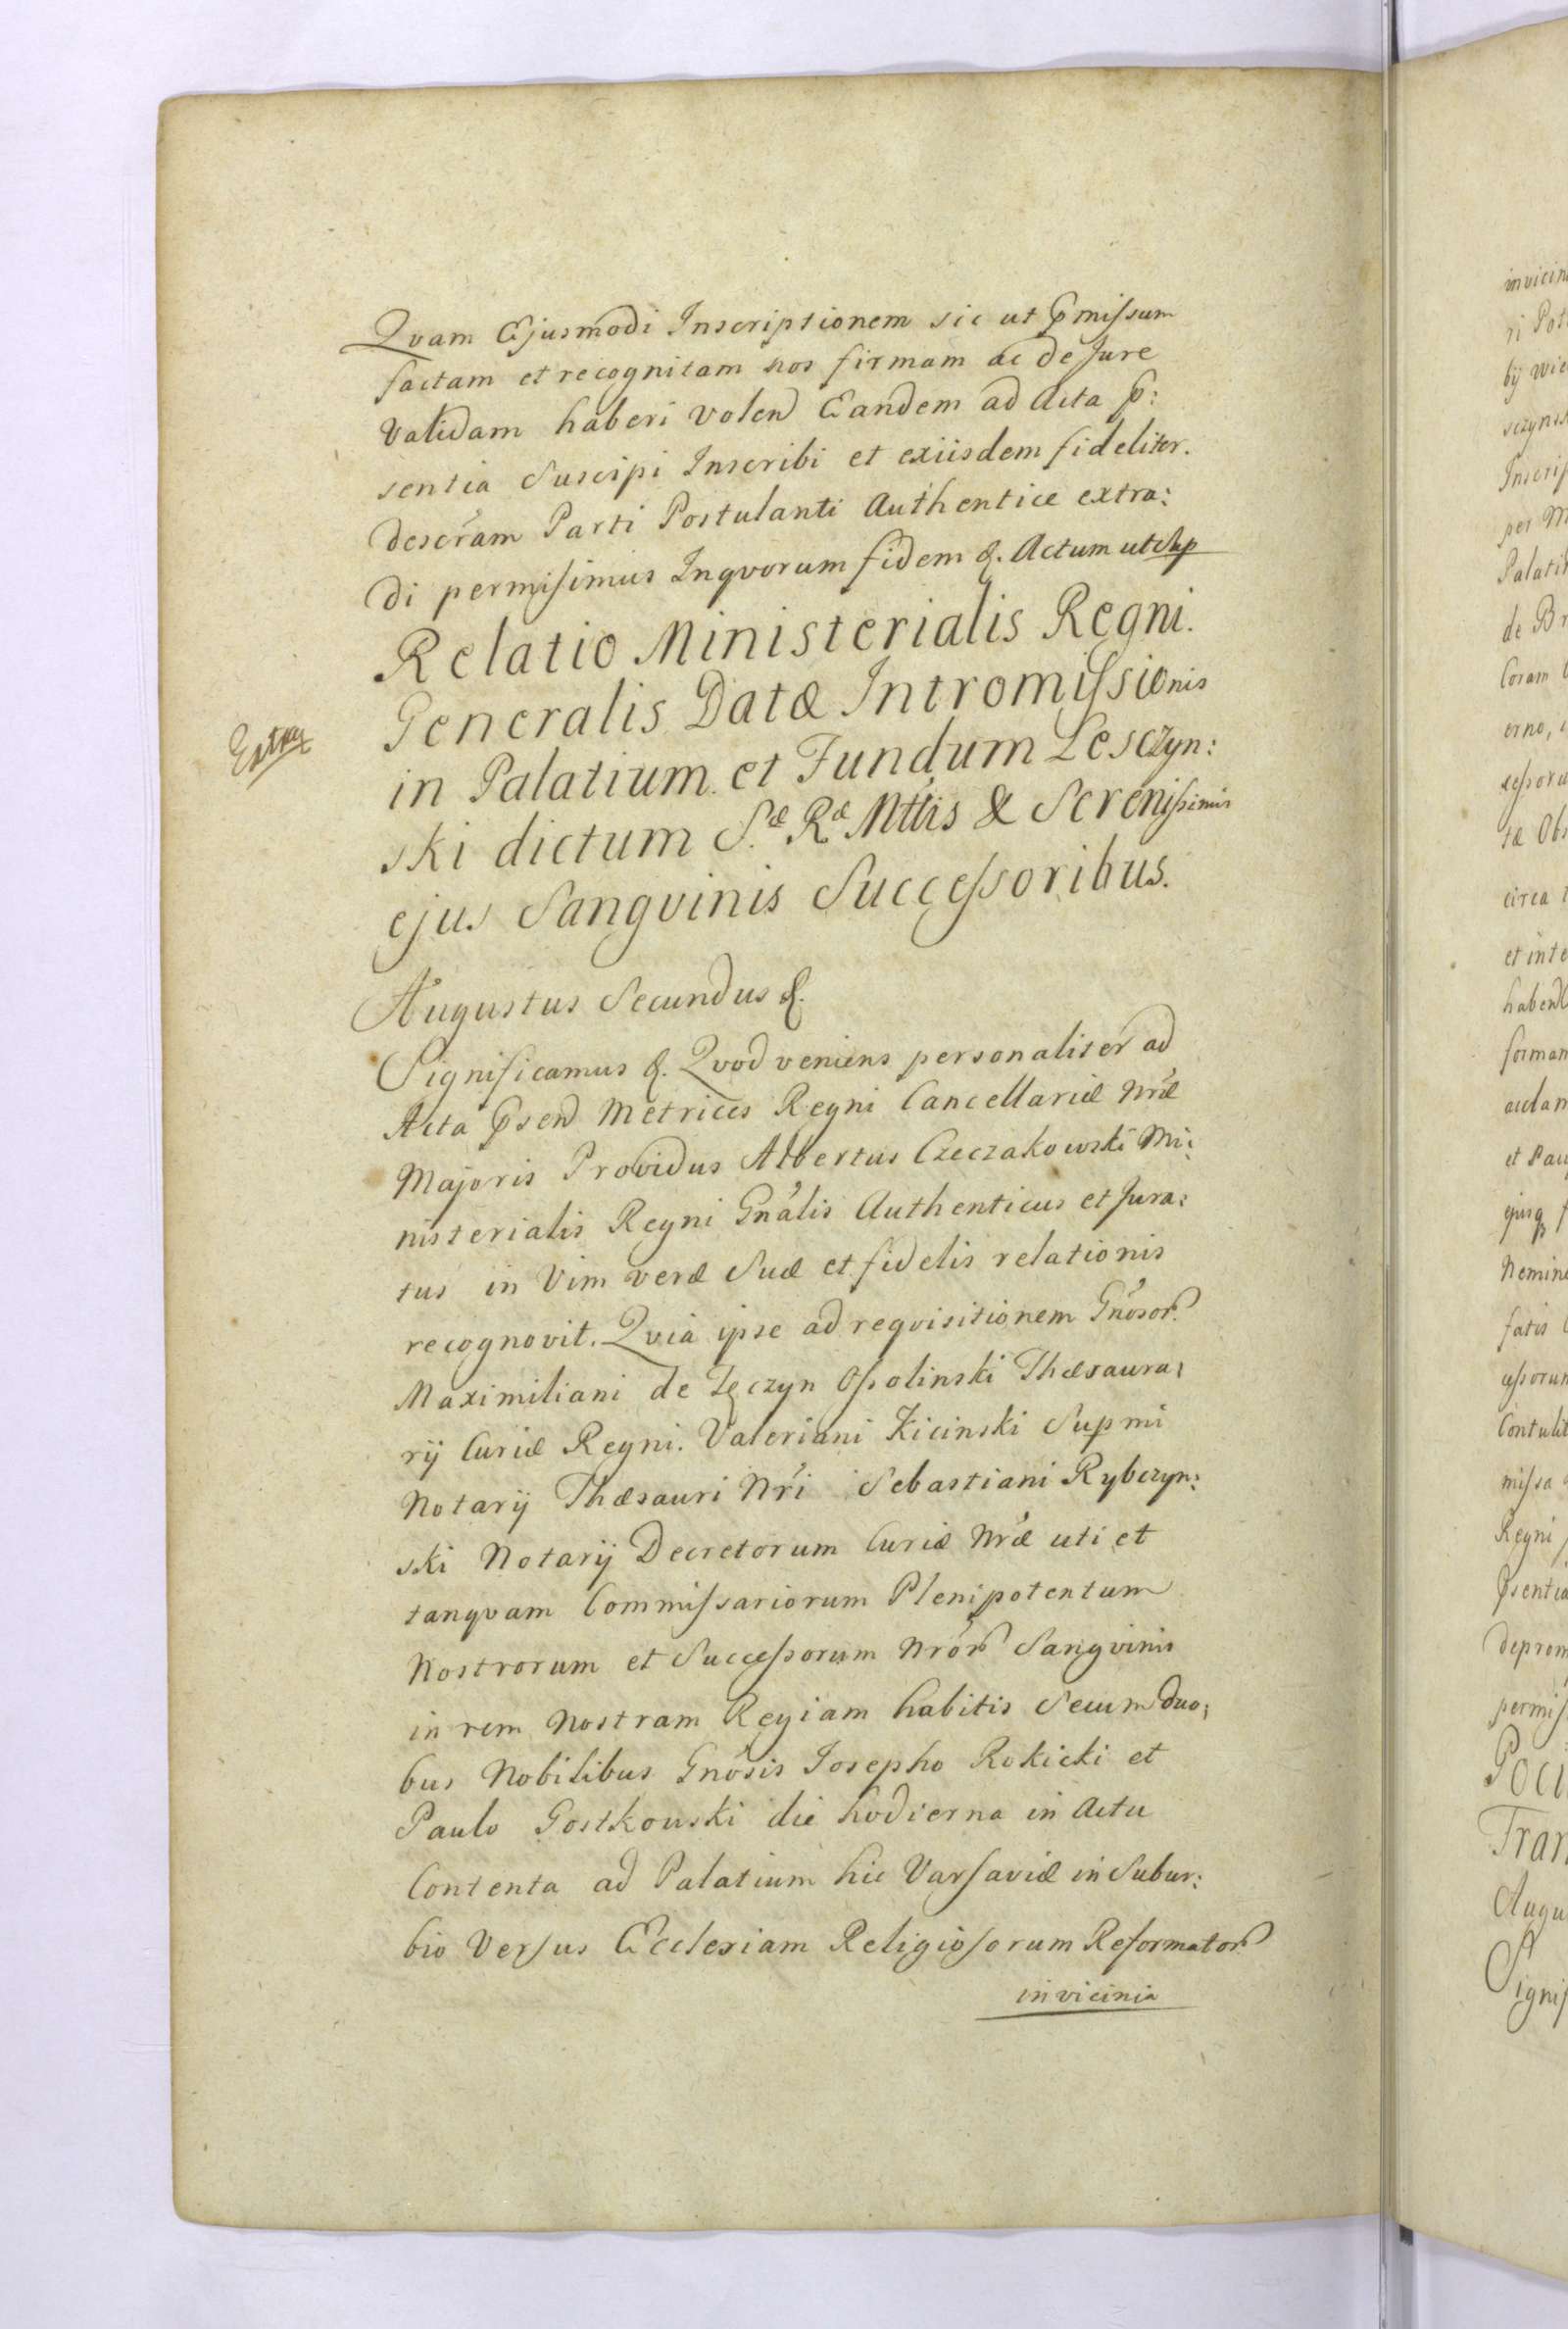 Qvam Ejusmodi Inscriptionem sic ut p̄missum
factam et recognitam nos firmam ac de Jure
validam haberi volen Eandem ad Acta p̄:
sentia Suscipi Inscribi et exiisdem fideliter.
descr̃am Parti Postulanti Authentice extra:
di permisimus Inqvorum fidem &. Actum ut sup
Relatio Ministerialis Regni.
Generalis Datæ Intromissionis
Extrax
in Palatium et Fundum Lesczyn:
ski dictum S.æ R.æ Mttis & Serenissimis
ejus Sangvinis Successoribus.
Augustus Secundus &.
Significamus &. Qvod veniens personaliter ad
Acta p̄sen Metrices Regni Cancellariæ Nr̃æ
Majoris Providus Albertus Czeczakowski Mi:
nisterialis Regni Gnãlis Authenticus et Jura:
tus in Vim veræ Suæ et fidelis relationis
recognovit. Qvia ipse ad reqvisitionem Gnõsor.
Maximiliani de Tęczyn Ossolinski Thæsaura:
rij Curiæ Regni. Valeriani Kicinski Supmi
Notarij Thæsauri Nr̃i Sebastiani Rybczyn:
ski Notarij Decretorum Curiæ Nr̃æ uti et
tanqvam Commissariorum Plenipotentum
Nostrorum et Successorum Nrõr Sangvinis
in rem Nostram Regiam habitis Secum duo:
bus Nobilibus Gnõsis Josepho Rokicki et
Paulo Gostkowski die hodierna in Actu
Contenta ad Palatium hic Varsaviæ in Subur:
bio Versus Ecclesiam Religiosorum Reformator
in vicinia